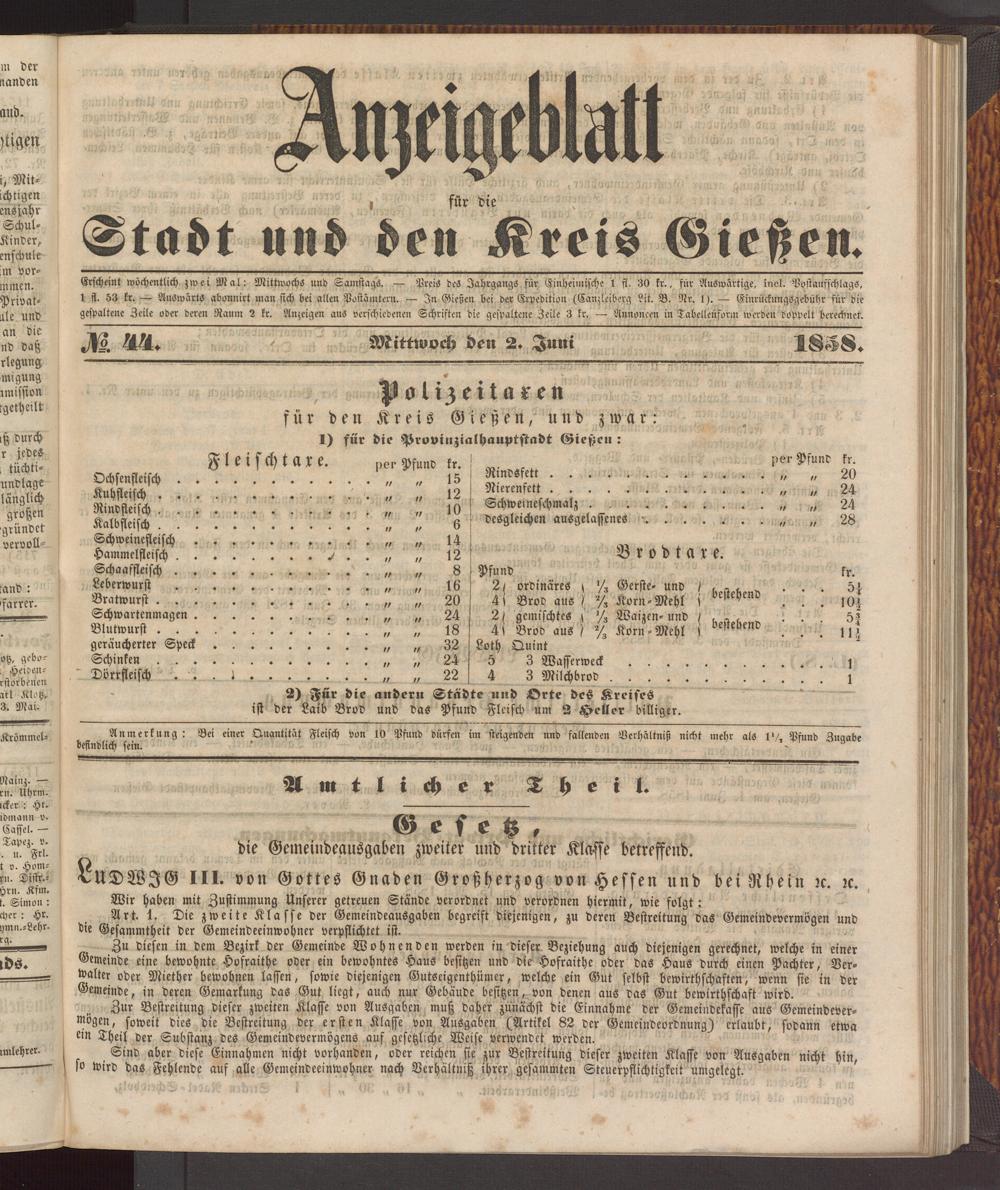 Anzeigeblatt
für die
Stadt und den Kreis Gießen.
Erscheint wöchentlich zwei Mal: Mittwochs und Samstags. — Preis des Jahrgangs für Einheimische 1 fl. 30 kr., für Auswärtige, incl. Postaufschlags,
1 fl. 53 kr. — Auswärts abonnirt man sich bei allen Postämtern. — In Gießen bei der Expedition (Canzleiberg Lit. B. Nr. 1). — Einrückungsgebühr für die
gespaltene Zeile oder deren Raum 2 kr. Anzeigen aus verschiedenen Schriften die gespaltene Zeile 3 kr. — Annoncen in Tabellenform werden doppelt berechnet.
№ 44. Mittwoch den 2. Juni 1858.
Polizeitaxen
für den Kreis Gießen, und zwar:
1) für die Provinzialhauptstadt Gießen:
Fleischtaxe. per Pfund kr.
Ochsenfleisch . . . . . . . . . „ „ 15
Kuhfleisch . . . . . . . . . „ „ 12
Rindfleisch . . . . . . . . . „ „ 10
Kalbfleisch . . . . . . . . . „ „ 6
Schweinefleisch . . . . . . . . „ „ 14
Hammelfleisch . . . . . . . . „ „ 12
Schaaffleisch . . . . . . . . „ „ 8
Leberwurst . . . . . . . . . „ „ 16
Bratwurst . . . . . . . . . „ „ 20
Schwartenmagen . . . . . . . . „ „ 24
Blutwurst . . . . . . . . . „ „ 18
geräucherter Speck . . . . . . . „ „ 32
Schinken . . . . . . . . . „ „ 24
Dörrfleisch . . . . . . . . . „ „ 22
per Pfund kr.
Rindsfett . . . . . . . . . „ „ 20
Nierenfett . . . . . . . . . „ „ 24
Schweineschmalz . . . . . . . . „ „ 24
desgleichen ausgelassenes . . . . . . „ „ 28
Brodtaxe.
Pfund kr.
2 } ordinäres { 1/3 Gerste- und } bestehend . . . 5¼
4 } Brod aus { 2/3 Korn-Mehl } . . . 10½
2 } gemischtes { 1/3 Waizen- und } bestehend . . . 5¾
4 } Brod aus { 2/3 Korn-Mehl } . . . 11½
Loth Quint
5 3 Wasserweck . . . . . . . . . 1
4 3 Milchbrod . . . . . . . . . 1
2) Für die andern Städte und Orte des Kreises
ist der Laib Brod und das Pfund Fleisch um 2 Heller billiger.
Anmerkung: Bei einer Quantität Fleisch von 10 Pfund dürfen im steigenden und fallenden Verhältniß nicht mehr als 1½ Pfund Zugabe
befindlich sein.
Amtlicher Theil.
Gesetz,
die Gemeindeausgaben zweiter und dritter Klasse betreffend.
LUDWIG III. von Gottes Gnaden Großherzog von Hessen und bei Rhein ꝛc. ꝛc.
Wir haben mit Zustimmung Unserer getreuen Stände verordnet und verordnen hiermit, wie folgt:
Art. 1. Die zweite Klasse der Gemeindeausgaben begreift diejenigen, zu deren Bestreitung das Gemeindevermögen und
die Gesammtheit der Gemeindeeinwohner verpflichtet ist.
Zu diesen in dem Bezirk der Gemeinde Wohnenden werden in dieser Beziehung auch diejenigen gerechnet, welche in einer
Gemeinde eine bewohnte Hofraithe oder ein bewohntes Haus besitzen und die Hofraithe oder das Haus durch einen Pachter, Ver-
walter oder Miether bewohnen lassen, sowie diejenigen Gutseigenthümer, welche ein Gut selbst bewirthschaften, wenn sie in der
Gemeinde, in deren Gemarkung das Gut liegt, auch nur Gebäude besitzen, von denen aus das Gut bewirthschaft wird.
Zur Bestreitung dieser zweiten Klasse von Ausgaben muß daher zunächst die Einnahme der Gemeindekasse aus Gemeindever-
mögen, soweit dies die Bestreitung der ersten Klasse von Ausgaben (Artikel 82 der Gemeindeordnung) erlaubt, sodann etwa
ein Theil der Substanz des Gemeindevermögens auf gesetzliche Weise verwendet werden.
Sind aber diese Einnahmen nicht vorhanden, oder reichen sie zur Bestreitung dieser zweiten Klasse von Ausgaben nicht hin,
so wird das Fehlende auf alle Gemeindeeinwohner nach Verhältniß ihrer gesammten Steuerpflichtigkeit umgelegt.